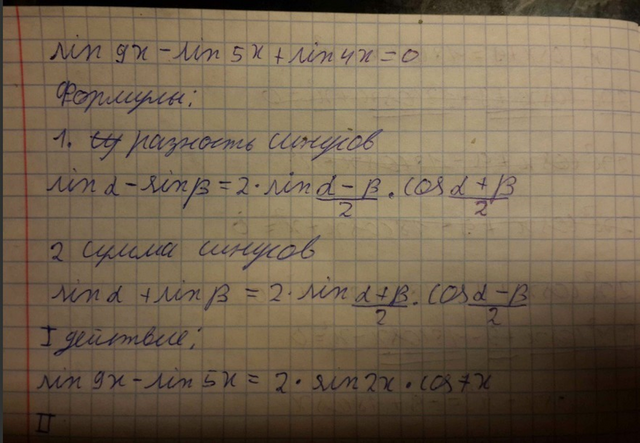 sin 9x - sin 5x + sin 4x = 0
Формулы:
1. разность синусов
sin α - sin β = 2 · sin (α - β)/2 · cos (α + β)/2
2 сумма синусов
sin α + sin β = 2 · sin (α + β)/2 · cos (α - β)/2
I действие:
sin 9x - sin 5x = 2 · sin 2x · cos 7x
II